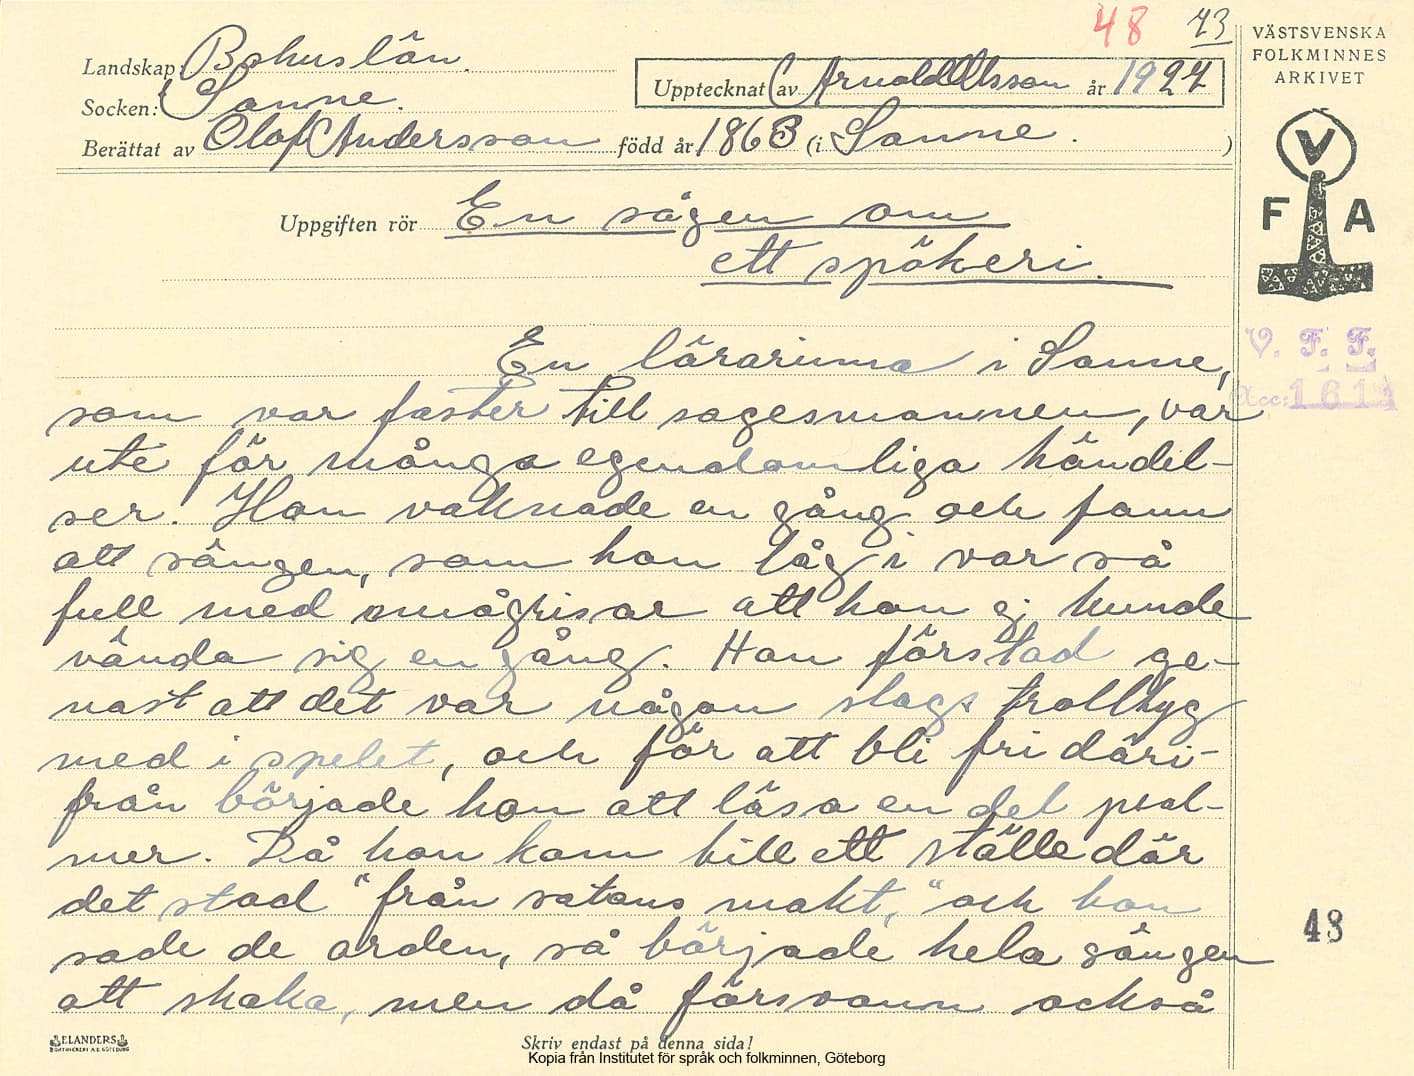 48 73
VÄSTSVENSKA
FOLKMINNES
ARKIVET
Landskap: Bohuslän.
Upptecknat av Arnold Olsson år 1927
Socken: Sanne.
Berättat av Olof Andersson född år 1863 (i Sanne.)
V
F A
Uppgiften rör En sägen om
ett spökeri.
V. F. F.
Acc: 1611
En lärarinna i Sanne,
som var faster till sagesmannen, var
ute för många egendomliga händel-
ser. Hon vaknade en gång och fann
att sängen, som hon låg i var så
full med smågrisar att hon ej kunde
vända sig en gång. Hon förstod ge-
nast att det var någon slags trolltyg
med i spelet, och för att bli fri däri-
från började hon att läsa en del psal-
mer. Då hon kom till ett ställe där
det stod "från satans makt," och hon
sade de orden, så började hela sängen
att skaka, men då försvann också
48
ELANDERS
BOKTRYCKERI A.B. GÖTEBORG
Skriv endast på denna sida!
Kopia från Institutet för språk och folkminnen, Göteborg